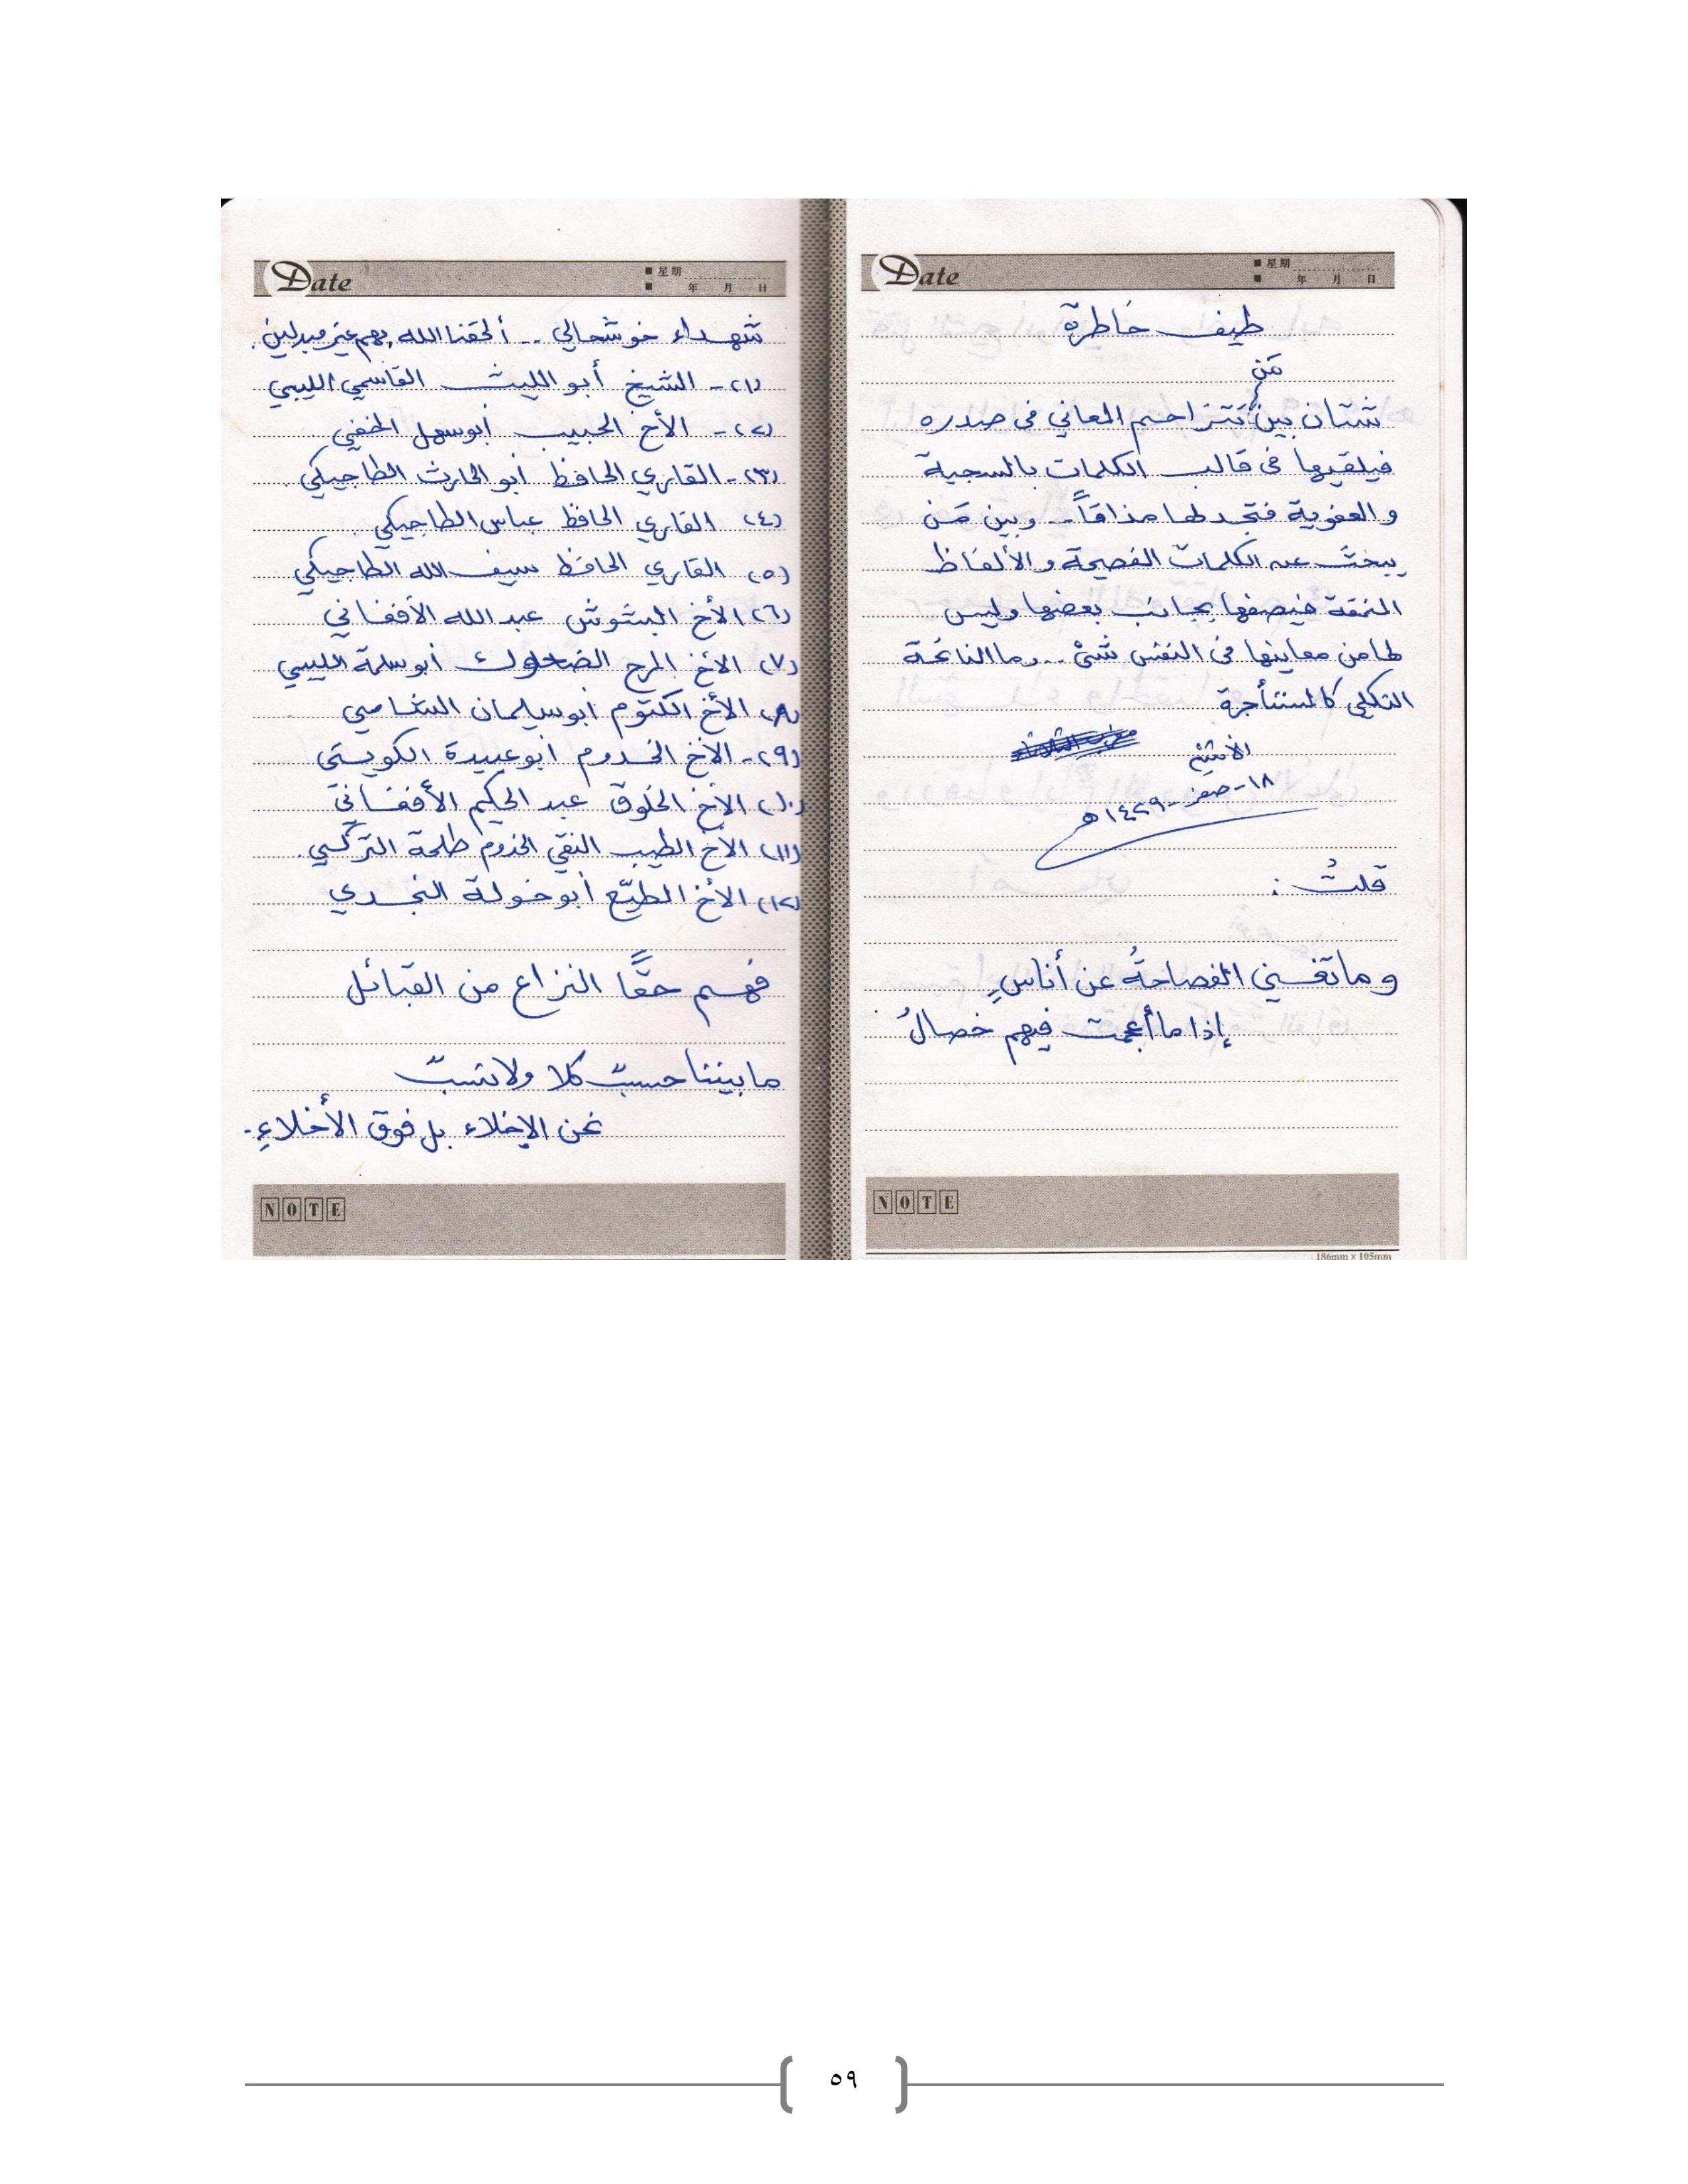 Date
■ 星期
■ 年 月 日
طيف خاطرة
مَن
شتان بين تتزاحم المعاني في صدره
فيلقيها في قالب الكلمات بالسجية
والعفوية فتجد لها مذاقاً.. وبين مَن
يبحث عن الكلمات الفصيحة والألفاظ
المنمقة فيصفها بجانب بعضها وليس
لها من معاينها في النفس شئ... وما النائحة
الثكلى كالمستأجرة
الاثنين
١٨-صفر-١٤٢٩هـ
قلتُ :
وما تغني الفصاحةُ عن أناسٍ
إذا ما أعجمت فيهم خصالُ
NOTE
186mm x 105mm
Date
■ 星期
■ 年 月 日
شهداء خوشحالي .. ألحقنا الله بهم غير مبدلين.
(١)- الشيخ أبو الليث القاسمي الليبي
(٢)- الأخ الحبيب أبو سهل
(٣)- القاري الحافظ أبو الحارث الطاجيكي.
(٤) القاري الحافظ عباس الطاجيكي.
(٥) القاري الحافظ سيف الله الطاجيكي
(٦) الأخ البشوش عبد الله الأفغاني
(٧) الأخ المرح الضحوك أبو سلمة الليبي
(٨) الأخ الكتوم أبو سليمان الشامي
(٩)- الأخ الخدوم أبو عبيدة الكويتي
(١٠) الأخ الخلوق عبد الحكيم الأفغاني
(١١) الأخ الطيب النقي الخدوم طلحة التركي.
(١٢) الأخ الطيّع أبو خولة النجدي
فهم حقًّا النزاع من القبائل
ما بيننا حسبٌ كلا ولا نسبٌ
نحن الإخلاء بل فوق الأخلاءِ.
NOTE
٥٩